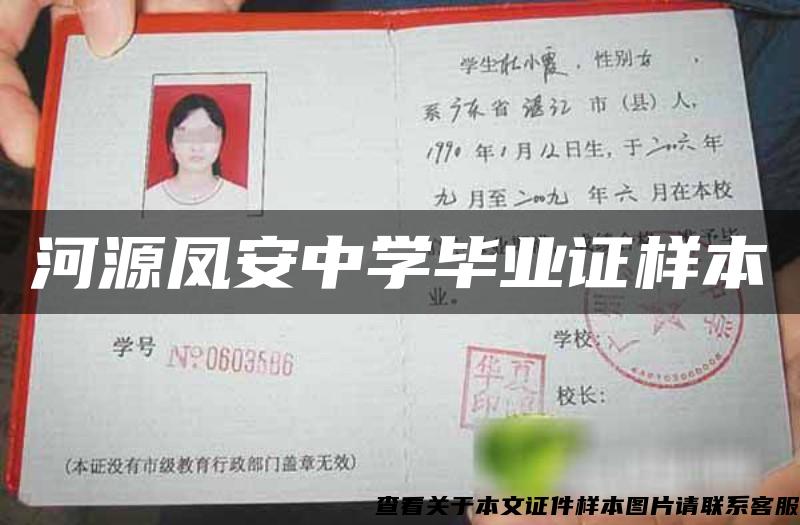 学生杜小霞，性别女，
系广东省湛江市（县）人，
1990年1月12日生，于二〇〇六年
九月至二〇〇九年六月在本校
河源凤安中学毕业证样本
业。
学号 №0603586
学校：
华夏
印
校长：
4401030000008
(本证没有市级教育行政部门盖章无效)
查看关于本文证件样本图片请联系客服